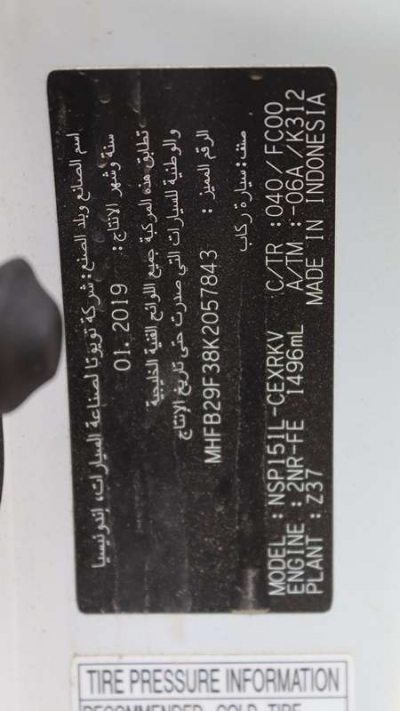 اسم الصانع وبلد الصنع: شركة تويوتا لصناعة السيارات، إندونيسيا
سنة وشهر الإنتاج: 01. 2019
تطابق هذه المركبة جميع اللوائح الفنية الخليجية
والوطنية للسيارات التي صدرت حتى تاريخ الإنتاج
الرقم المميز : MHFB29F38K2057843
صنف: سيارة ركاب
MODEL : NSP151L-CEXRKV C/TR : 040/FC00
ENGINE : 2NR-FE 1496mL A/TM : -06A/K312
PLANT : Z37 MADE IN INDONESIA
TIRE PRESSURE INFORMATION
RECOMMENDED COLD TIRE